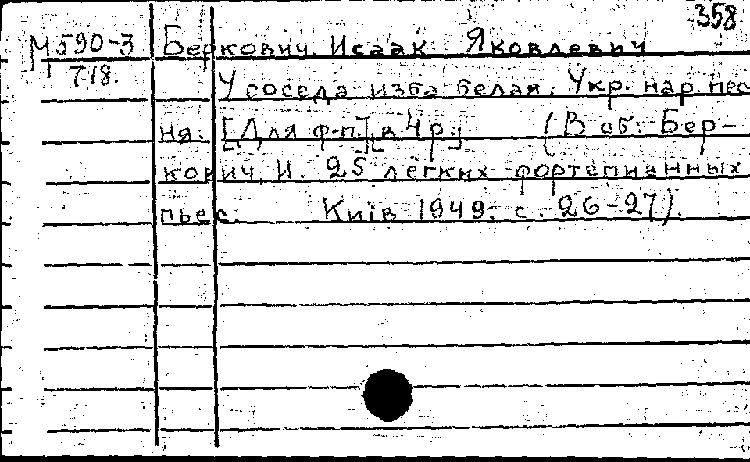 358
М590-3 Беркович, Исаак Яковлевич
718.
У соседа изба белая. Укр. нар. пес
ня. [Для ф-п.] [в 4 р.] (В сб: Бер-
кович, И. 25 легких фортепианных
пьес. Київ 1949. с. 26-27).